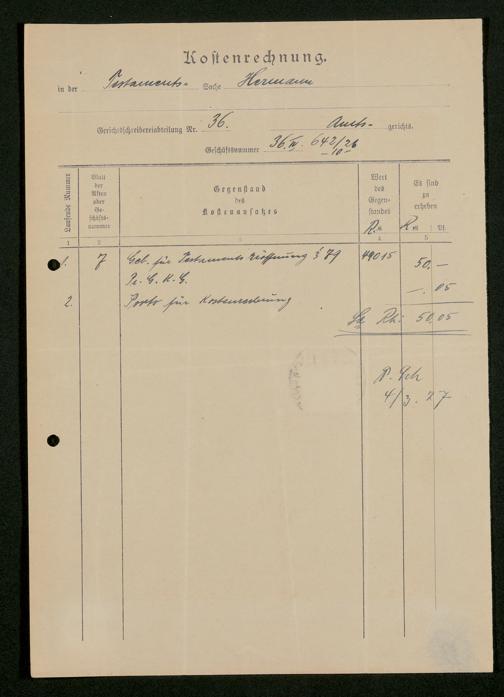 Kostenrechnung.
in der Testaments- Sache Hermann
Gerichtsschreibereiabteilung Nr. 36. Amts- gerichts.
Geschäftsnummer 36.IV. 642/26
Laufende Nummer
Blatt der Akten oder Ge- schäfts- nummer
Gegenstand des Kostenansatzes
Wert des Gegen- standes
Es sind zu erheben
R.M R.M Pf.
1 2 3 4 5
1. 7 Geb. für Testaments Eröffnung § 79 49015 50.—
Pr. G. K. G.
—.05
2. Porto für Kostenrechnung
Sa Rm: 50,05
4/3. 27